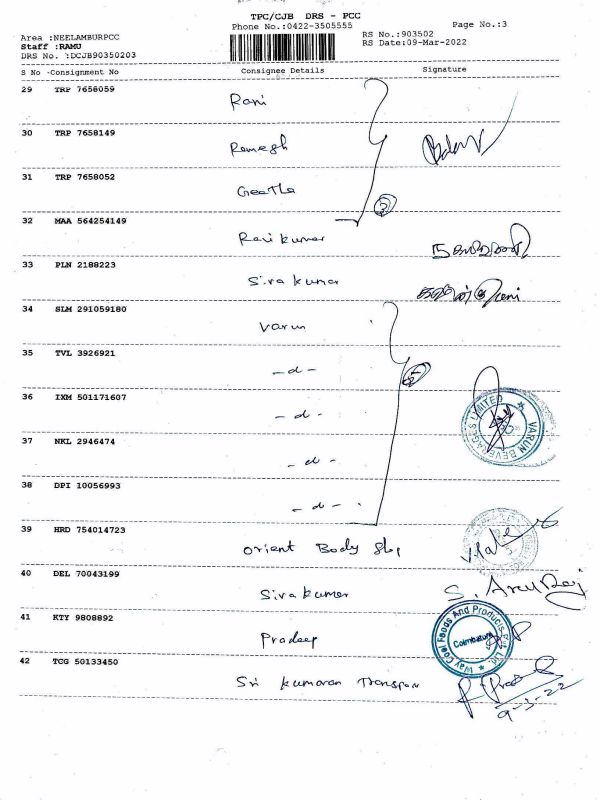 TPC/CJB DRS - PCC
Phone No.:0422-3505555
Page No.:3
Area :NEELAMBURPCC
RS No.:903502
Staff :RAMU
RS Date:09-Mar-2022
DRS No. :DCJB90350203
S No -Consignment No Consignee Details Signature
29 TRP 7658059 Rani
30 TRP 7658149 Ramesh
31 TRP 7658052 Geetha
3
32 MAA 564254149 Ravikumar
33 PLN 2188223 Sivakumar
34 SLM 291059180 Varun
35 TVL 3926921 -d-
5
36 IXM 501171607 -d-
VARUN BEVERAGES LIMITED
37 NKL 2946474 -d-
38 DPI 10056993 -d-
39 HRD 754014723 Orient Body Shop
40 DEL 70043199 Sivakumar S. Arul Raj
41 KTY 9808892 Pradeep
Way Cool Foods And Products Pvt Ltd
Coimbatore
42 TCG 50133450 Sri Kumaran Transport
9-3-22